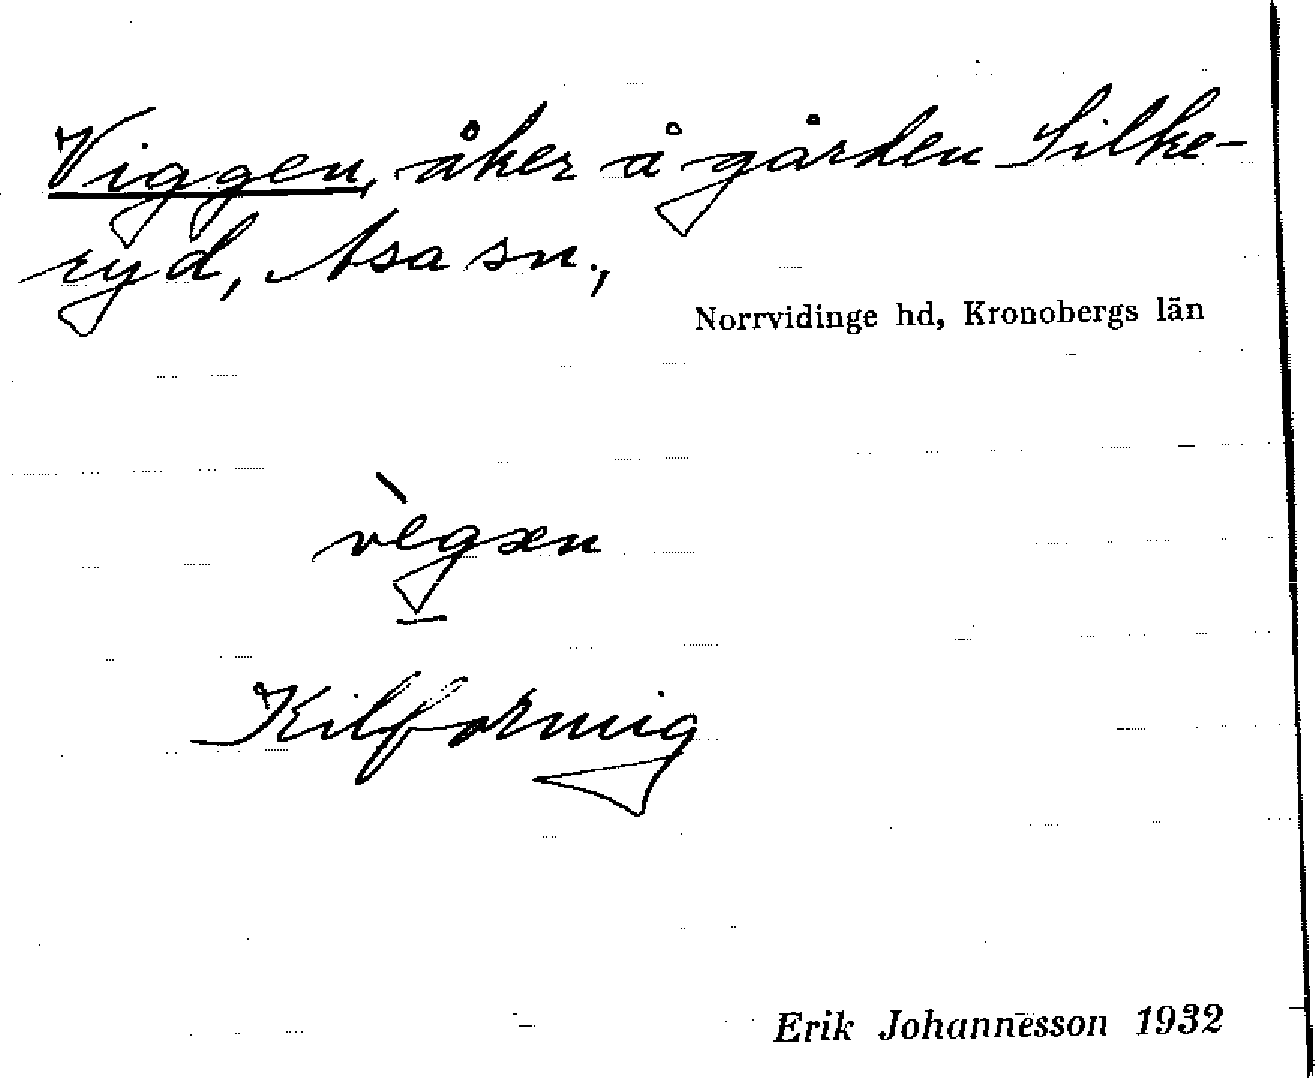 Viggen, åker å gården Silke-
ryd, Asa sn.,
Norrvidinge hd, Kronobergs län
vègæn
Kilformig
Erik Johannesson 1932